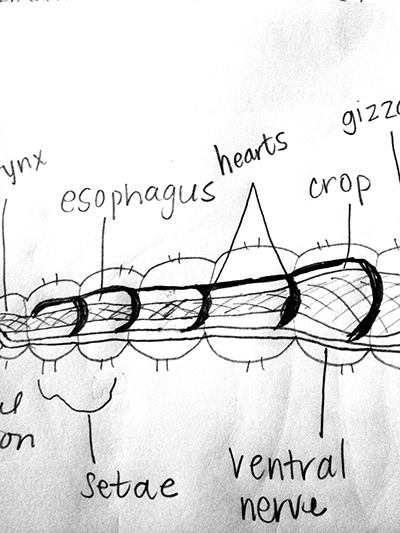 ynx
esophagus
hearts
crop
gizz
on
setae
ventral
nerve